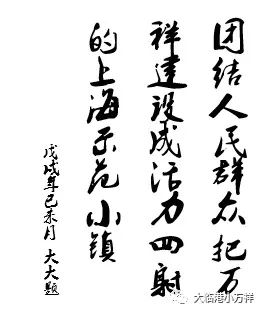 团结人民群众把万
祥建设成活力四射
的上海示范小镇
戊戌年己未月 大大题
大临港小万祥